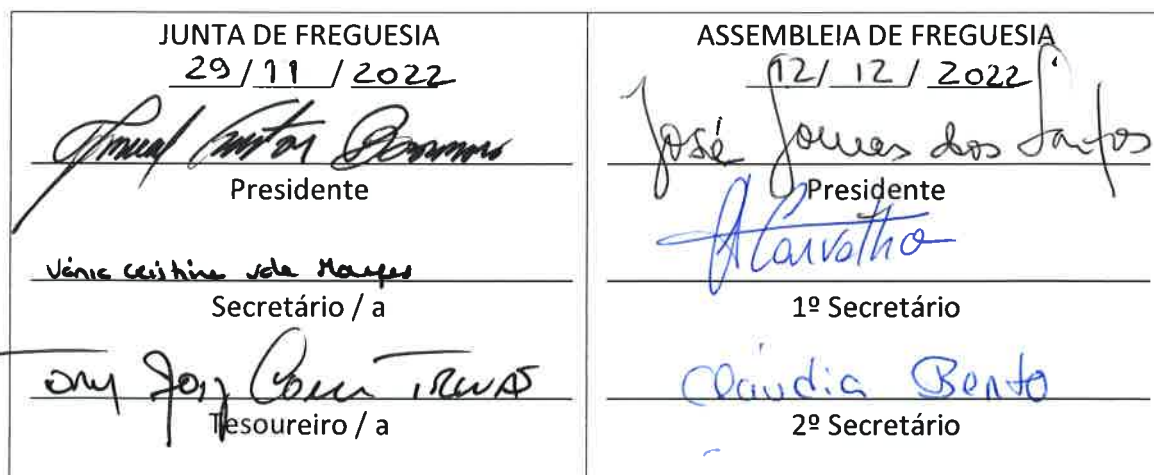 JUNTA DE FREGUESIA
29/11/2022
Presidente
Vânia Cristina
Secretário / a
Tony
Tesoureiro / a
ASSEMBLEIA DE FREGUESIA
12/12/2022
José Gomes dos Santos
Presidente
A Carvalho
1º Secretário
Cláudia Bento
2º Secretário